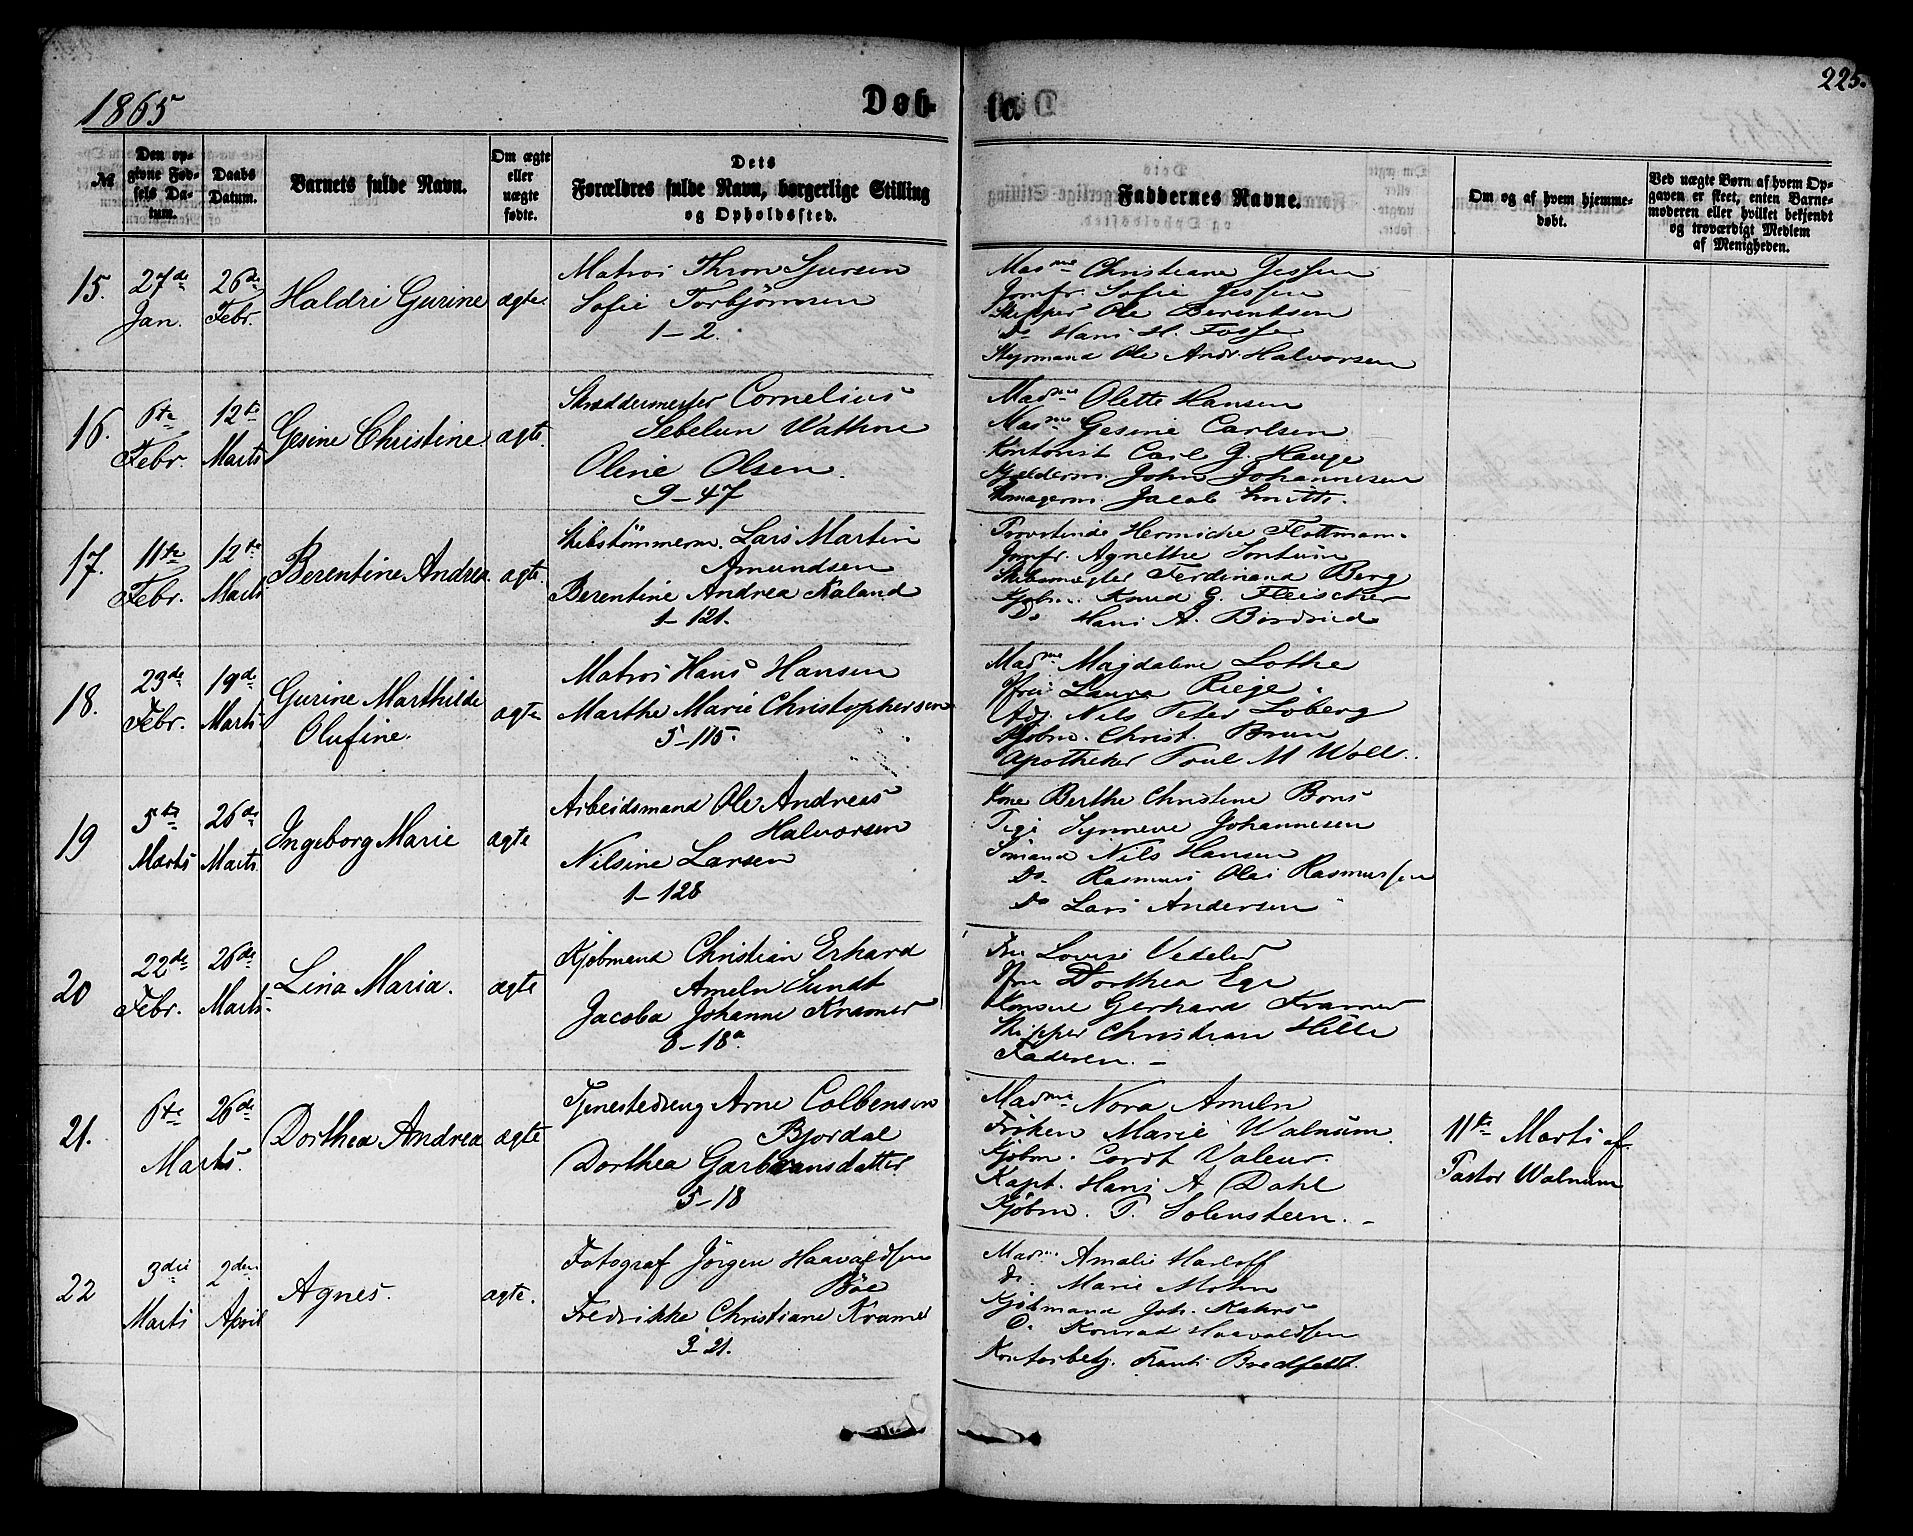 1865
Døb-
te.
225.
№
Den op-
givne Fød-
sels Da-
tum.
Daabs
Datum.
Barnets fulde Navn.
Om ægte
eller
uægte
fødte.
Dets
Forældres fulde Navn, borgerlige Stilling
og Opholdssted.
Faddernes Navne.
Om og af hvem hjemme-
døbt.
Ved uægte Børn af hvem Op-
gaven er skeet, enten Barne-
moderen eller hvilket bekjendt
og troværdigt Medlem
af Menigheden.
15.
27de
Jan.
26de
Febr.
Haldri Gurine
ægte.
Matros Thron Sjursen
Sofie Torbjörnsen
1-2.
Madme Christiane Jessen
Jomfr. Sofie Jessen
Skipper Ole Berentsen
Do Hans H. Fosse
Styrmand Ole Andr. Halvorsen
16.
6te
Febr.
12te
Marts
Gesine Christine
ægte.
Skræddermester Cornelius
Sebelun Wathne
Oline Olsen.
9-47
Madme Olette Hansen
Madme Gesine Carlsen
Kontorist Carl G. Hauge
John Johannesen
Jacob Smitt.
17.
11te
Febr.
12te
Marts
Berentine Andrea
ægte.
Skibstömmerm. Lars Martin
Amundsen
Berentine Andrea Kaland
1-121.
Provstinde Hermiche Flottmann.
Jomfr. Agnethe Sontum
Skibsmægler Ferdinand Berg
Kjøbm. Knud G. Fleischer
Do Hans A. Bordvied
18.
23de
Febr.
19de
Marts
Gurine Marthilde
Olufine.
ægte
Matros Hans Hansen
Marthe Marie Christophersen
5-115.
Madme Magdalene Lothe
Laura Riege.
Nils Peter Loberg
Kjøbm. Christ. Brun
Apotheker Poul M Woll.
19
5te
Marts
26de
Marts
Ingeborg Marie
ægte
Arbeidsmand Ole Andreas
Halvorsen
Nilsine Larsen
1-128
Kone Berthe Christine Bons
Pige Synneve Johannesen
Sömand Nils Hansen
Do Rasmus Olai Rasmussen
Do Lars Andersen
20
22de
Febr.
26de
Marts.
Lina Maria.
ægte
Kjøbmand Christian Erhard
Ameln Sundt
Jacoba Johanne Kramer
8-18a.
Fru Lovise Vedeler
Dorthea Ege
Konsul Gerhard Kramer
Skipper Christian Hille
Faderen.
21.
6te
26de
Marts.
Dorthea Andrea
ægte
Tjenestedreng Arne Colbenson
Bjordal
Dorthea Garbransdatter
5-18
Madme Nora Ameln
Fröken Marie Walnum.
Kjøbm. Cordt Valeur.
Kapt. Hans A Dahl
Kjøbm. P. Solensteen.
11te Marts af
Pastor Walnum
22
3die
Marts
2den
April
Agnes.
ægte.
Fotograf Jörgen Haavaldsen
Böe
Fredrikke Christiane Kramer
3-21.
Madme Amalie Harloff
Do. Marie Mohn
Kjöbmand Joh. Kahrs
D. Konrad Haavaldsen
Kontorbetj. Frants Bredfeldt.